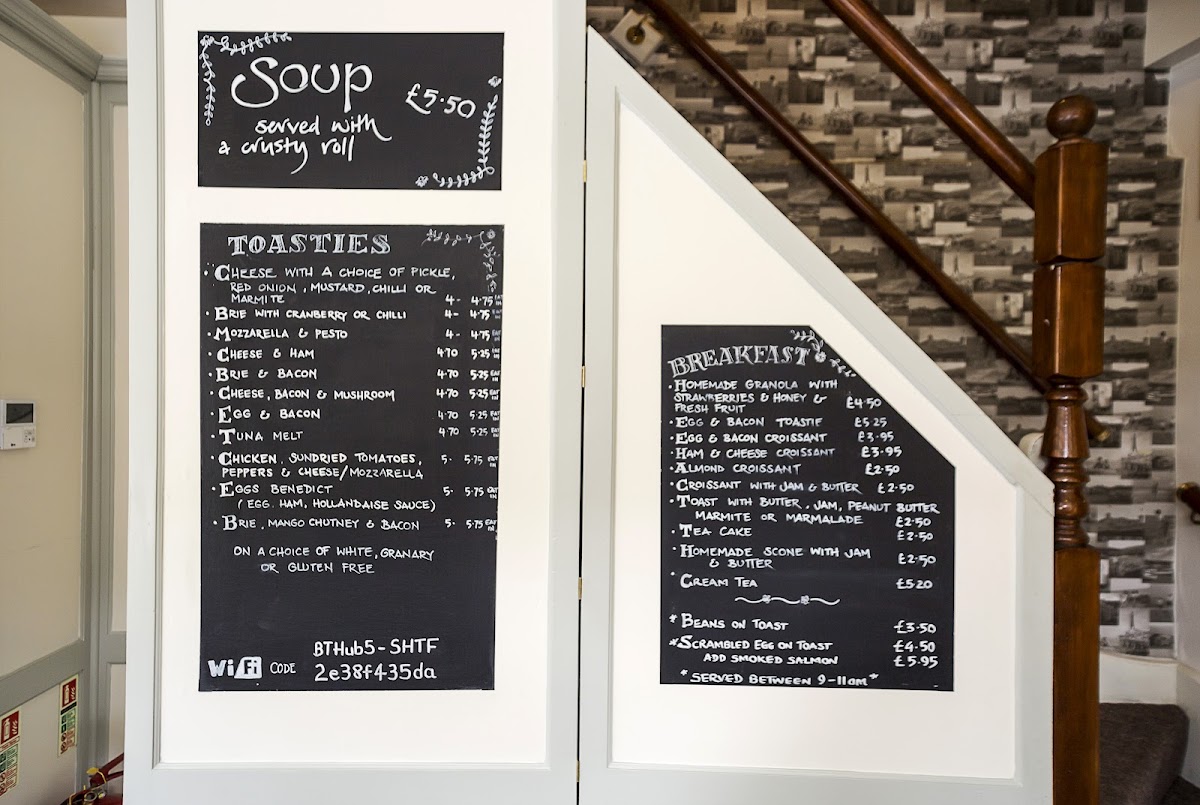 Soup £5.50
served with
a crusty roll
TOASTIES
• CHEESE WITH A CHOICE OF PICKLE,
RED ONION, MUSTARD, CHILLI OR
MARMITE 4- 4.75 EAT IN
• BRIE WITH CRANBERRY OR CHILLI 4- 4.75 EAT IN
• MOZZARELLA & PESTO 4- 4.75 EAT IN
• CHEESE & HAM 4.70 5.25 EAT IN
• BRIE & BACON 4.70 5.25 EAT IN
• CHEESE, BACON & MUSHROOM 4.70 5.25 EAT IN
• EGG & BACON 4.70 5.25 EAT IN
• TUNA MELT 4.70 5.25 EAT IN
• CHICKEN, SUNDRIED TOMATOES, 5. 5.75 EAT IN
PEPPERS & CHEESE/MOZZARELLA
• EGGS BENEDICT 5. 5.75 EAT IN
(EGG. HAM, HOLLANDAISE SAUCE)
• BRIE, MANGO CHUTNEY & BACON 5. 5.75 EAT IN
ON A CHOICE OF WHITE, GRANARY
OR GLUTEN FREE
BTHub5-SHTF
WiFi CODE 2e38f435da
BREAKFAST
• HOMEMADE GRANOLA WITH
STRAWBERRIES & HONEY &
FRESH FRUIT £4.50
• EGG & BACON TOASTIE £5.25
• EGG & BACON CROISSANT £3.95
• HAM & CHEESE CROISSANT £3.95
• ALMOND CROISSANT £2.50
• CROISSANT WITH JAM & BUTTER £2.50
• TOAST WITH BUTTER, JAM, PEANUT BUTTER
MARMITE OR MARMALADE £2.50
• TEA CAKE £2.50
• HOMEMADE SCONE WITH JAM
& BUTTER £2.50
• CREAM TEA £5.20
* BEANS ON TOAST £3.50
* SCRAMBLED EGG ON TOAST £4.50
ADD SMOKED SALMON £5.95
* SERVED BETWEEN 9-11am *